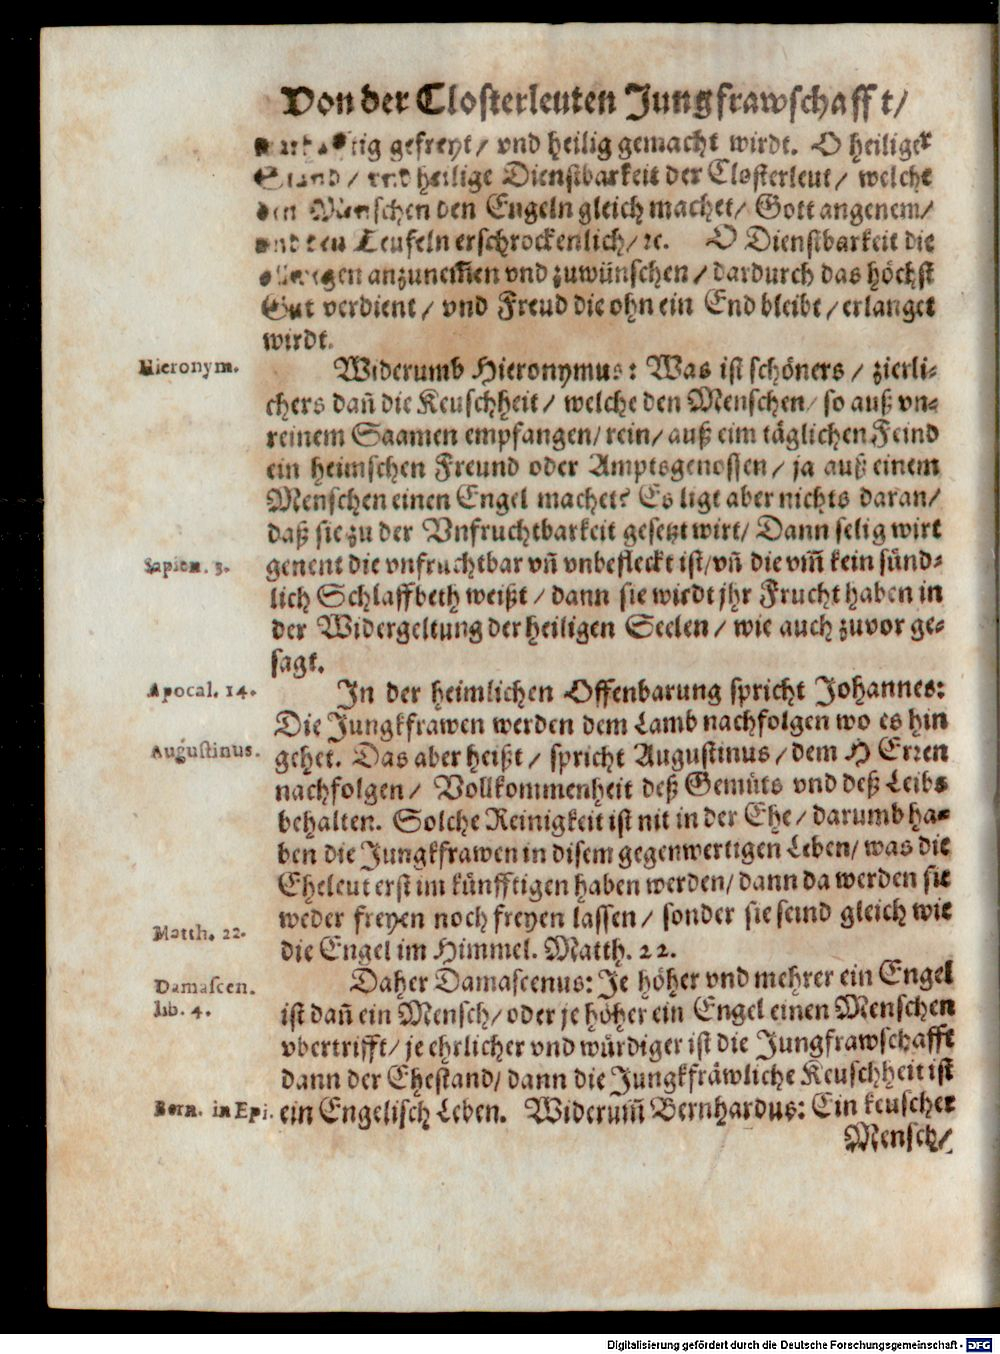 Von der Closterleuten Jungfrawschafft/
gefreyt/ vnd heilig gemacht wirdt. O heiliger
Stand/ vnd heilige Dienstbarkeit der Closterleut/ welche
den Menschen den Engeln gleich machet/ Gott angenem/
vnd den Teufeln erschrockenlich/ ꝛc. O Dienstbarkeit die
anzunem̃en vnd zuwünschen/ dardurch das höchst
Gut verdient/ vnd Freud die ohn ein End bleibt/ erlanget
wirdt.
Hieronym.
Widerumb Hieronymus: Was ist schöners/ zierli-
chers dañ die Keuschheit/ welche den Menschen/ so auß vn-
reinem Saamen empfangen/ rein/ auß eim täglichen Feind
ein heimschen Freund oder Amptsgenossen/ ja auß einem
Menschen einen Engel machet? Es ligt aber nichts daran/
daß sie zu der Vnfruchtbarkeit gesetzt wirt/ Dann selig wirt
Sapien. 3.
genent die vnfruchtbar vñ vnbefleckt ist/ vñ die vm̃ kein sünd-
lich Schlaffbeth weißt/ dann sie wirdt jhr Frucht haben in
der Widergeltung der heiligen Seelen/ wie auch zuvor ge-
sagt.
Apocal. 14.
In der heimlichen Offenbarung spricht Johannes:
Die Jungkfrawen werden dem Lamb nachfolgen wo es hin
Augustinus.
gehet. Das aber heißt/ spricht Augustinus/ dem HErren
nachfolgen/ Vollkommenheit deß Gemüts vnd deß Leibs
behalten. Solche Reinigkeit ist nit in der Ehe/ darumb ha-
ben die Jungkfrawen in disem gegenwertigen Leben/ was die
Eheleut erst im künfftigen haben werden/ dann da werden sie
weder freyen noch freyen lassen/ sonder sie seind gleich wie
Matth. 22.
die Engel im Himmel. Matth. 22.
Damascen.
lib. 4.
Daher Damascenus: Je höher vnd mehrer ein Engel
ist dañ ein Mensch/ oder je höher ein Engel einen Menschen
vbertrifft/ je ehrlicher vnd würdiger ist die Jungfrawschafft
dann der Ehestand/ dann die Jungkfräwliche Keuschheit ist
Bern. in Epi.
ein Engelisch Leben. Widerum̃ Bernhardus: Ein keuscher
Mensch/
Digitalisierung gefördert durch die Deutsche Forschungsgemeinschaft - DFG